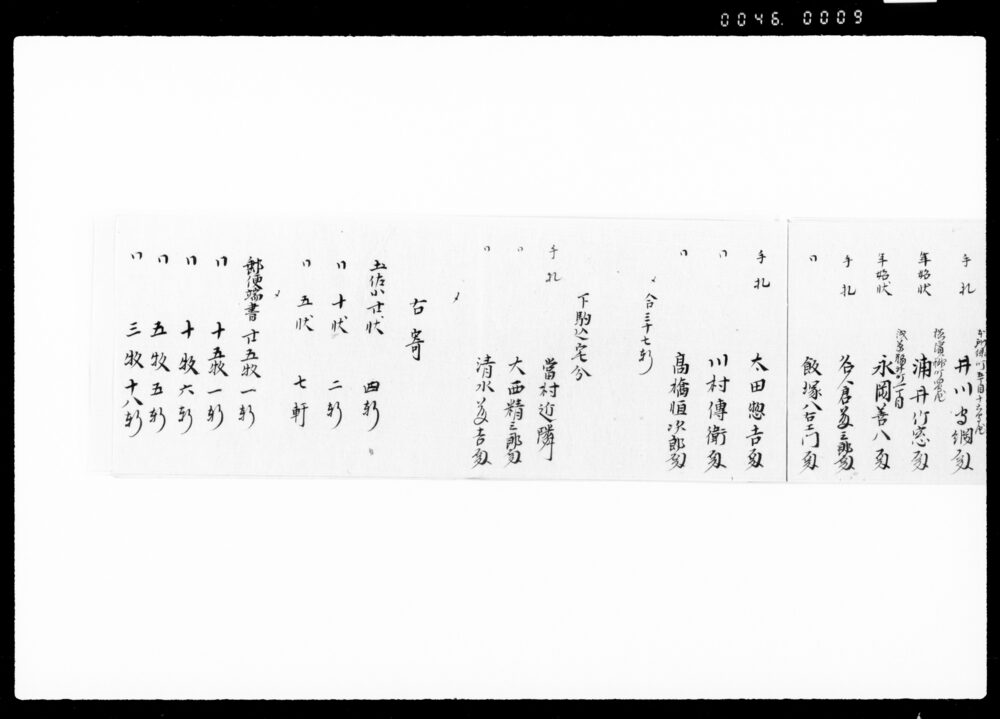 0046.0009
手札 井川守綱殿
年始状 浦井竹窓殿
年始状 永岡善八殿
手札 谷倉藤三郎殿
〃 飯塚八右エ門殿
手札 太田惣吉殿
〃 川村傳衛殿
〃 髙橋恒次郎殿
〆合三十七軒
下駒込宅分
手札 當村近隣
〃 大西精三郎殿
〃 清水藤吉殿
〆
右寄
土佐小廿状 四軒
〃 十状 二軒
〃 五状 七軒
〆
郵便端書 廿五牧 一軒
〃 十五牧 一軒
〃 十牧 六軒
〃 五牧 五軒
〃 三牧 十八軒